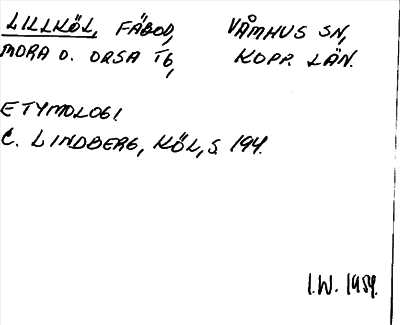 LILLKÖL, FÄBOD, VÅMHUS SN,
MORA O. ORSA TG, KOPP. LÄN.
ETYMOLOGI.
C. LINDBERG, KÖL, S. 194.
I.W. 1984.